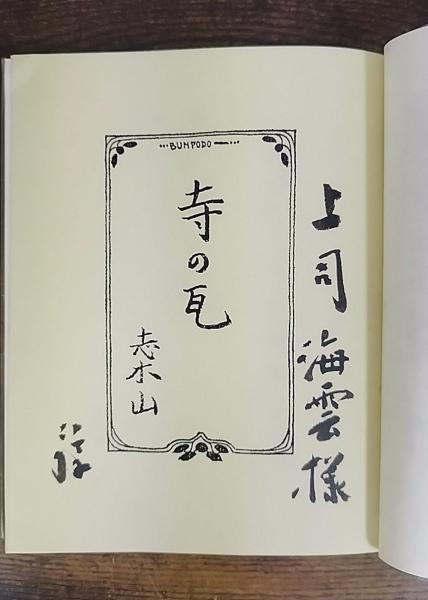 上司海雲様
BUMPODO
寺の瓦
志木山